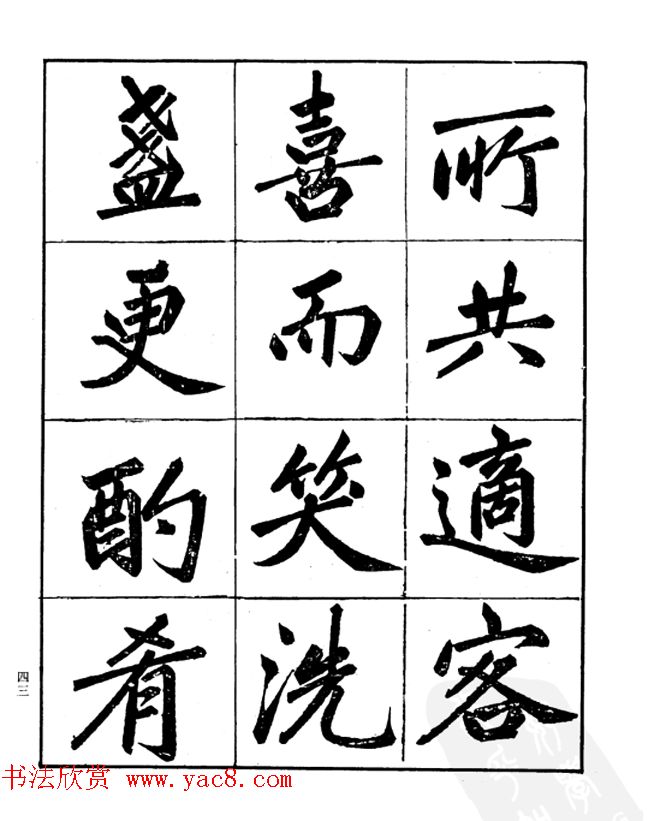 所共適客
喜而笑洗
盞更酌肴
四三
书法欣赏 www.yac8.com